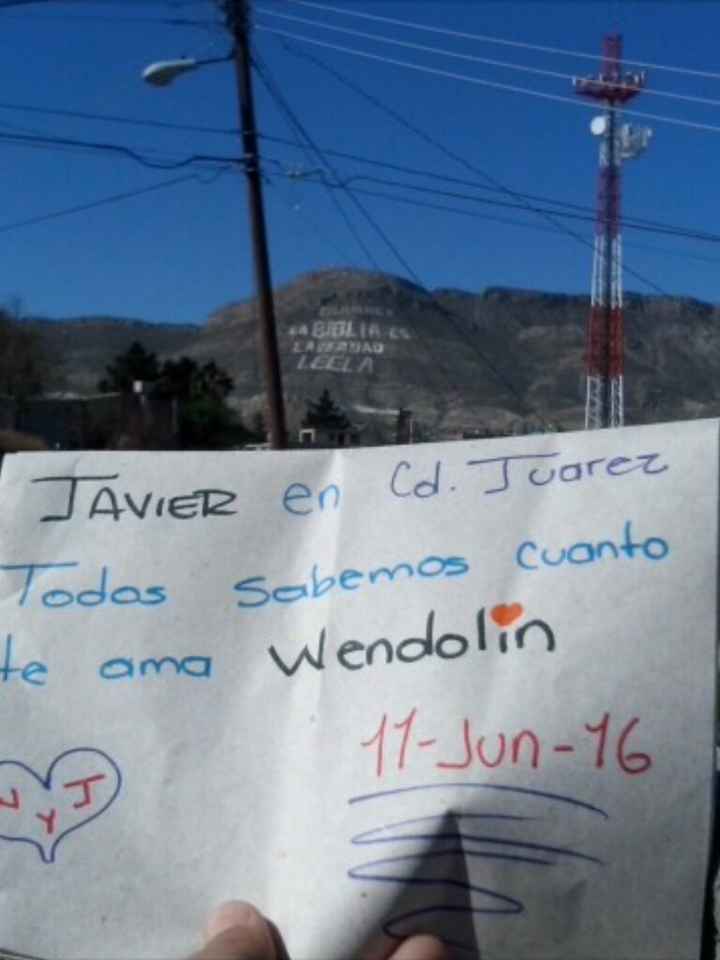 CD JUAREZ
LA BIBLIA ES
LA VERDAD
LEELA
JAVIER en Cd. Juarez
Todos sabemos cuanto
te ama Wendolin
W y J
11-Jun-16